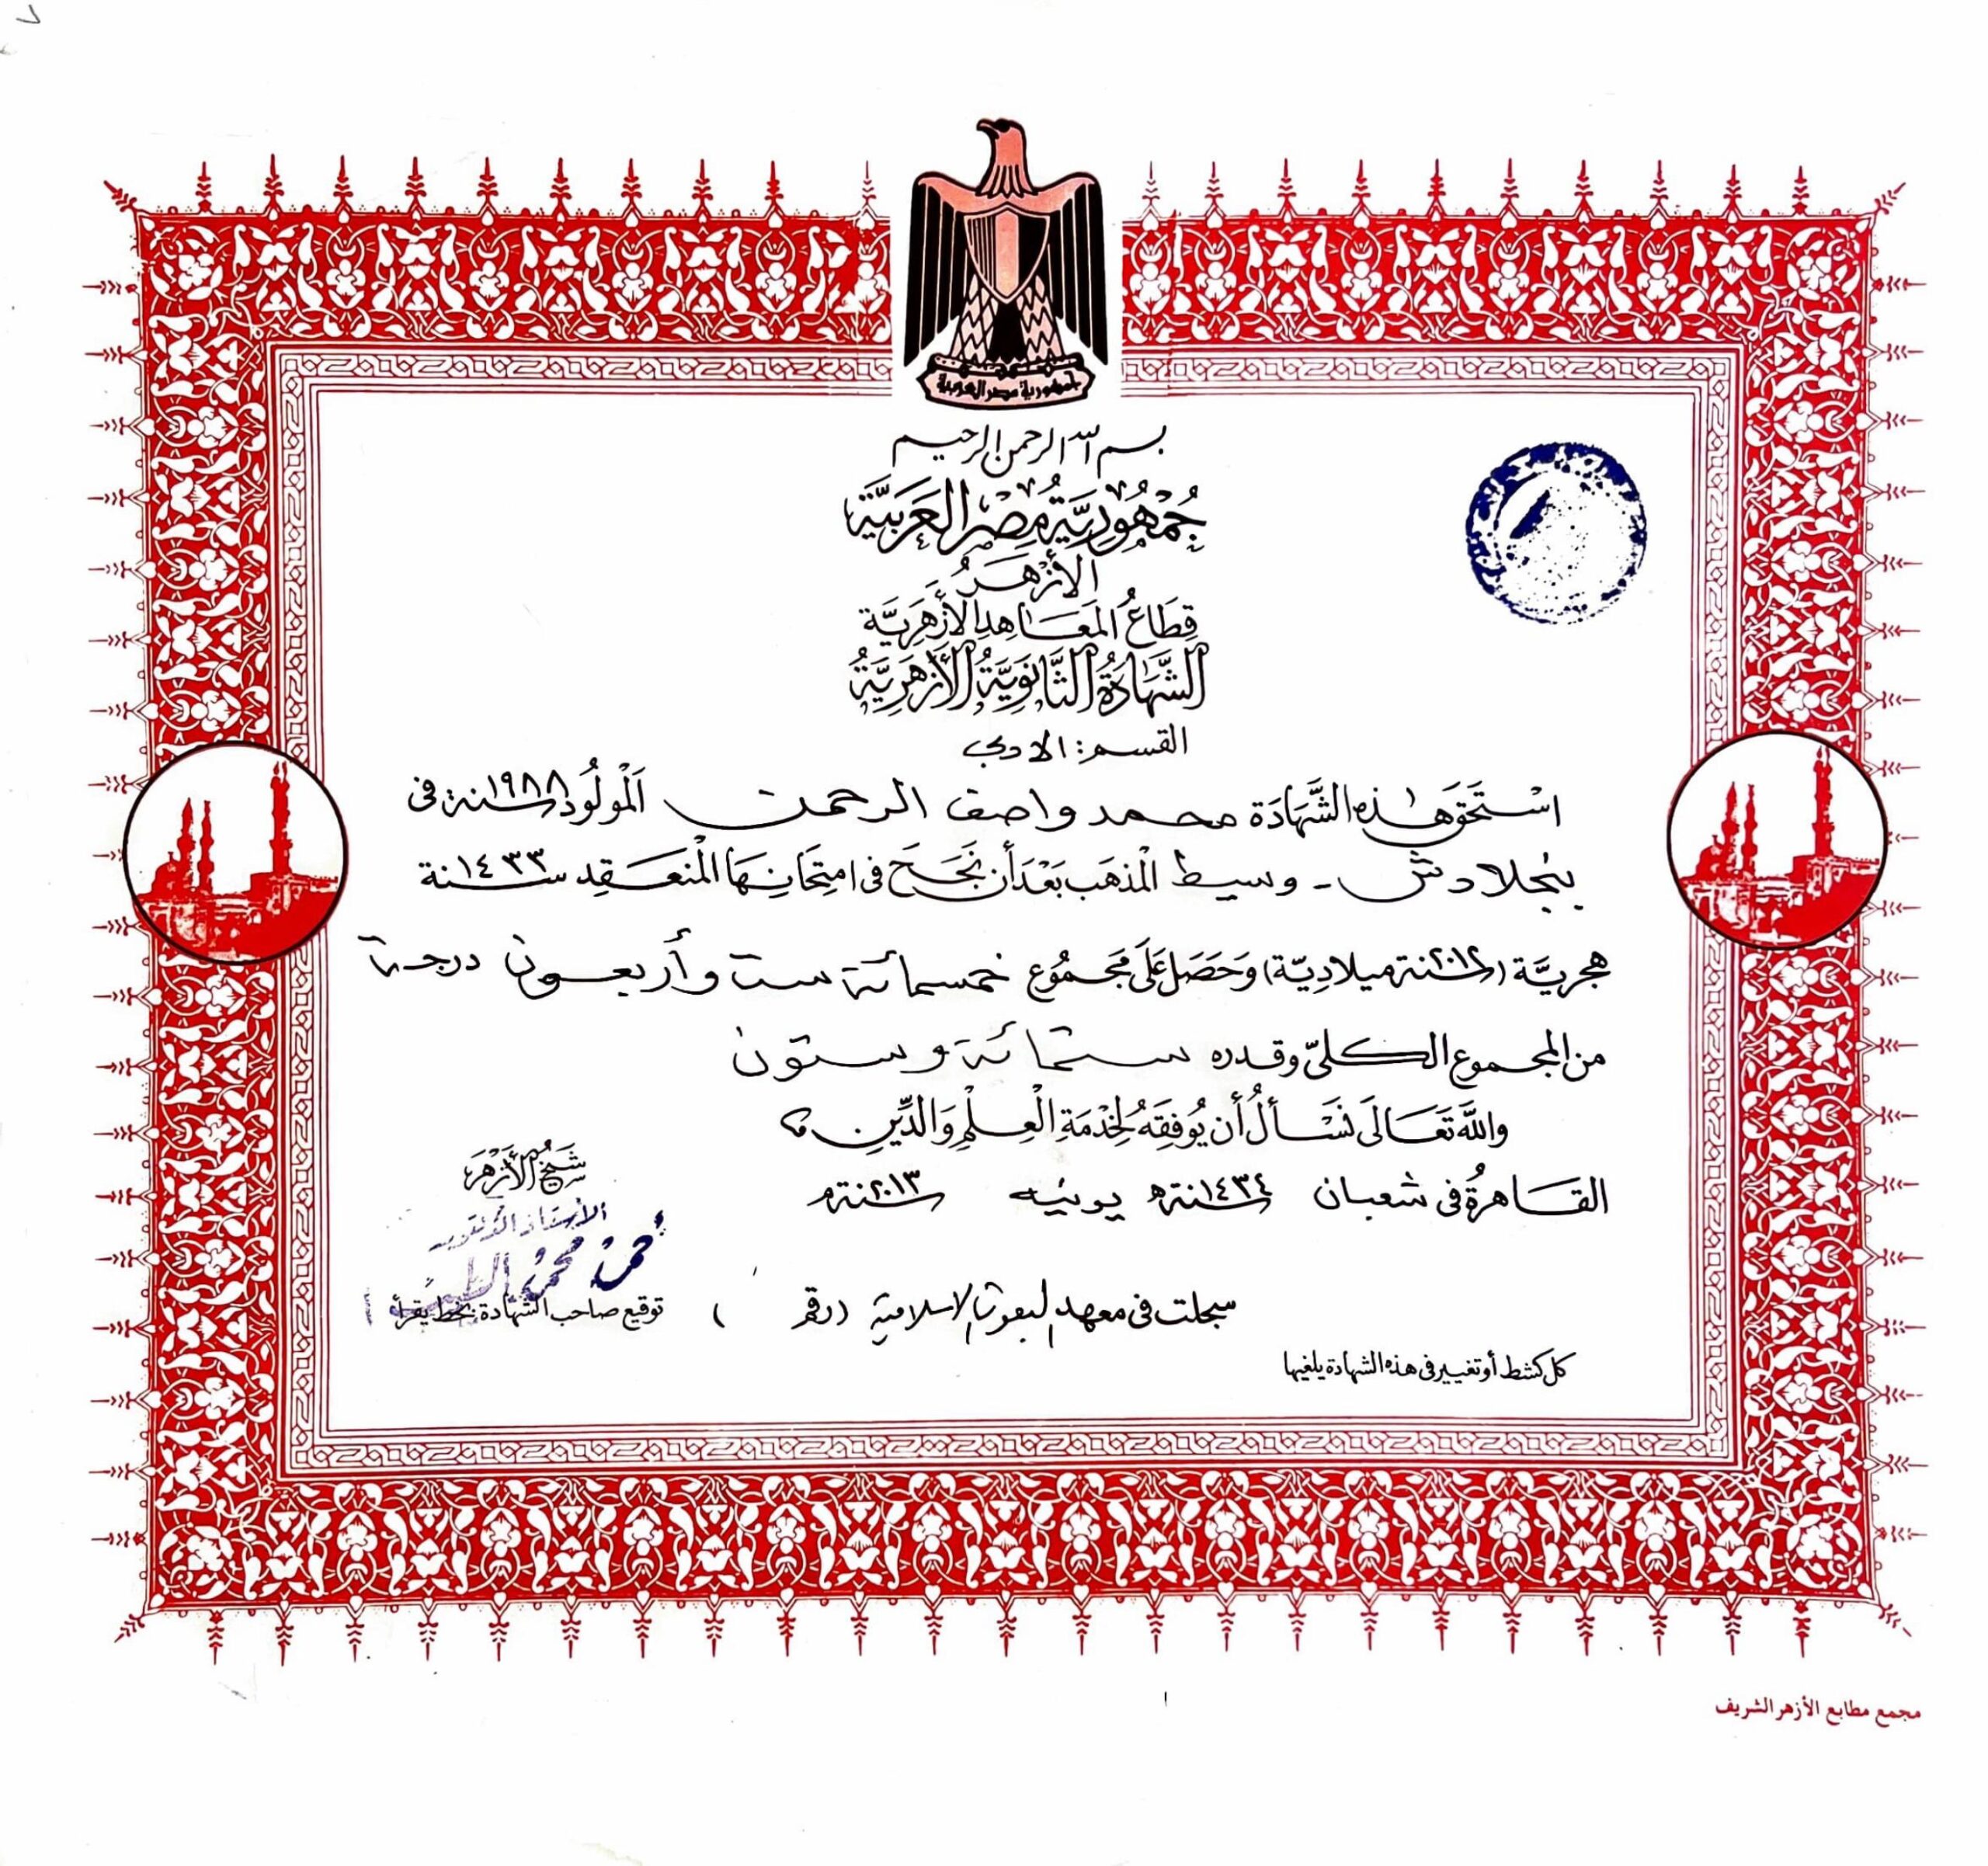 جمهورية مصر العربية
بسم الله الرحمن الرحيم
جُمْهُورِيَّةُ مِصْرَ الْعَرَبِيَّة
الأَزْهَرُ
قِطَاعُ المَعَاهِدِ الأَزْهَرِيَّة
الشَّهَادَةُ الثَّانَوِيَّةُ الأَزْهَرِيَّةُ
القسم: الادبى
اسْتَحَقَّ هٰذِهِ الشَّهَادَة محمد واصف الرحمن المَوْلُودُ سنة ١٩٨٨ فى
بنجلادش - وسيط المذهَب بَعْدَ أن نَجَحَ فى امتِحَانِهَا المُنعَقِد سنة ١٤٣٣
هجريَّة (سنة ٢٠١٢ ميلاديّة) وَحَصَلَ عَلَى مَجمُوع خمسمائة ست وأربعون درجة
من المجموع الكلىّ وقدره ستمائة وستون
واللَّه تَعَالَى نَسْأَلُ أن يُوفقَهُ لِخِدْمَةِ الْعِلْمِ وَالدِّينِ
القاهرةُ فى شعبان سنة ١٤٣٤ه يونيه سنة ٢٠١٣م
شَيْخُ الأَزْهَر
الأستاذ الدكتور
أحمد محمد الطيب
سجلت فى معهد البعوث الإسلامية (رقم )
توقيع صاحب الشهادة بخط يقرأ
كل كشط أو تغيير فى هذه الشهادة يلغيها
مجمع مطابع الأزهر الشريف